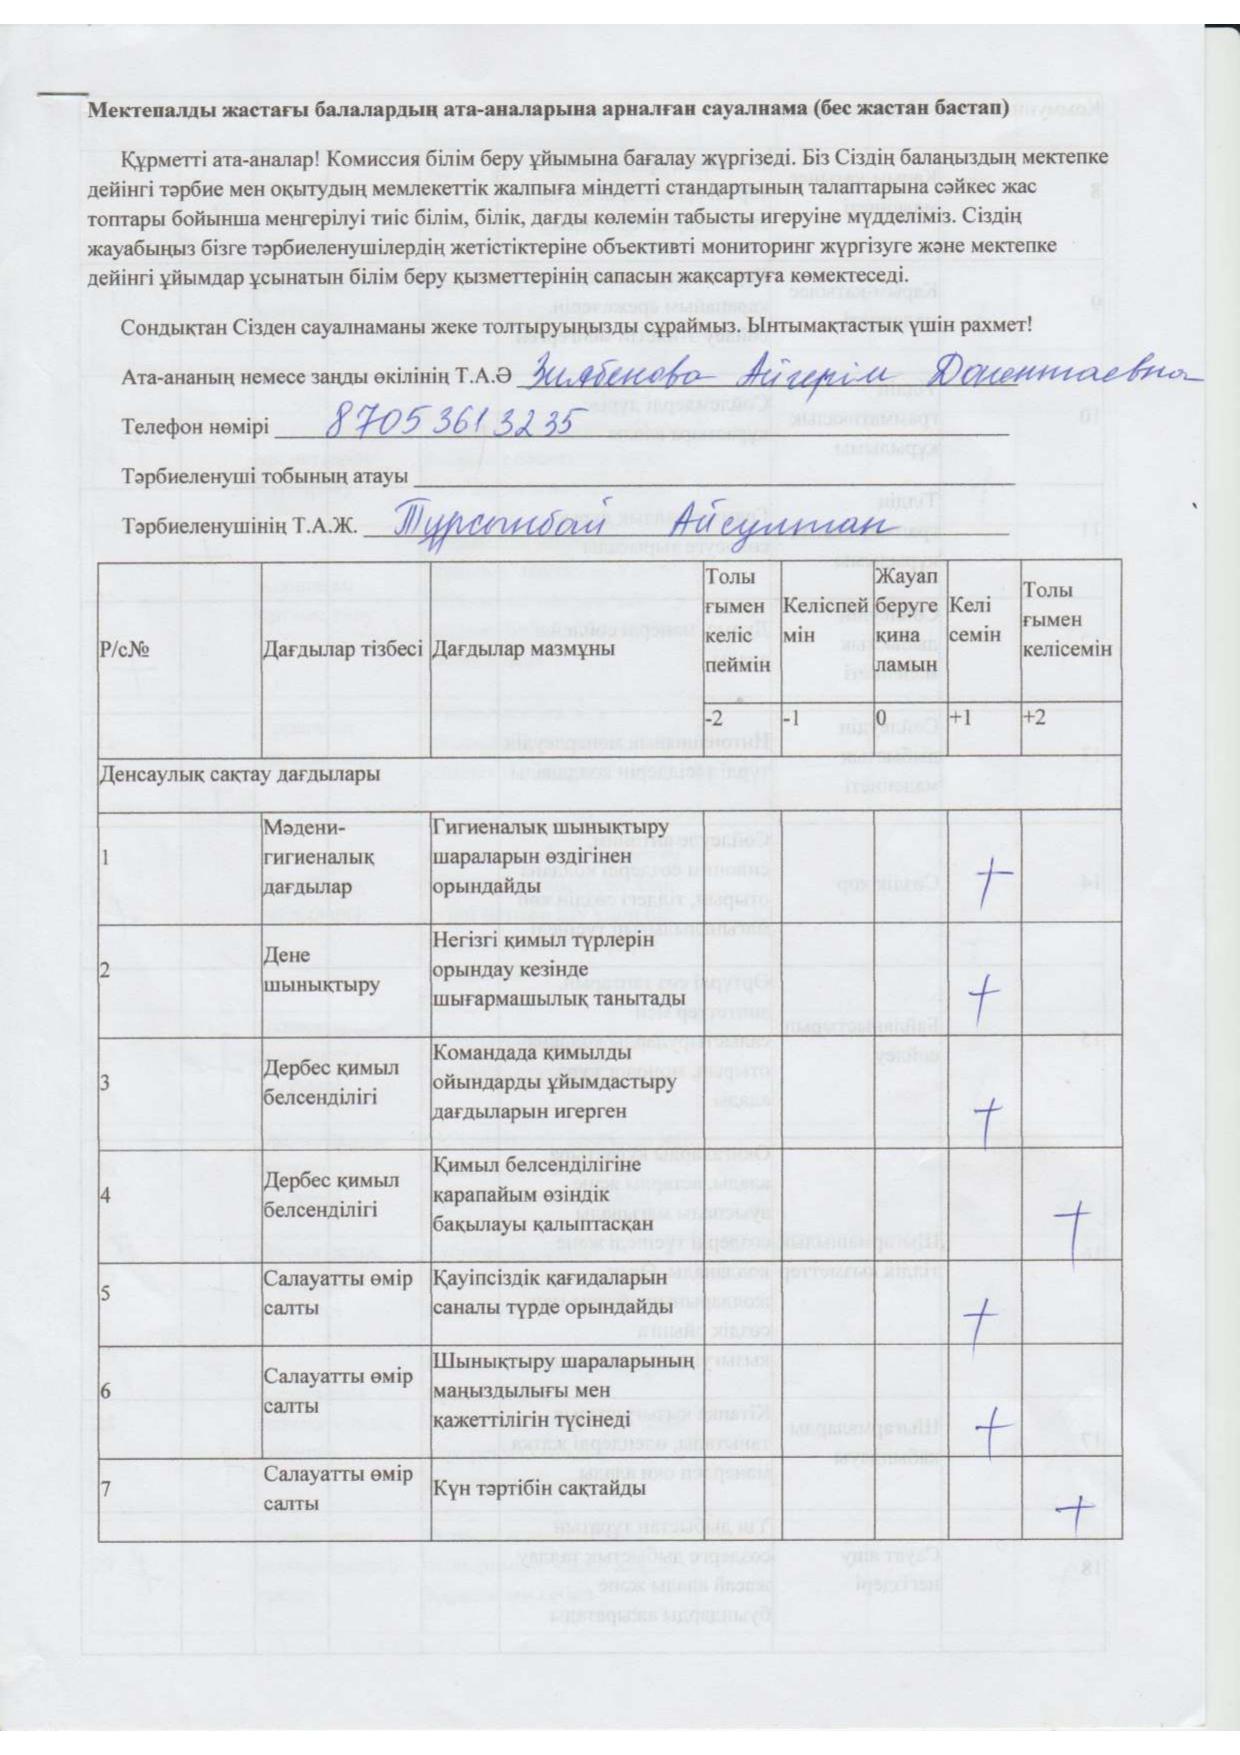 Мектепалды жастағы балалардың ата-аналарына арналған сауалнама (бес жастан бастап)
Құрметті ата-аналар! Комиссия білім беру ұйымына бағалау жүргізеді. Біз Сіздің балаңыздың мектепке
дейінгі тәрбие мен оқытудың мемлекеттік жалпыға міндетті стандартының талаптарына сәйкес жас
топтары бойынша меңгерілуі тиіс білім, білік, дағды көлемін табысты игеруіне мүдделіміз. Сіздің
жауабыңыз бізге тәрбиеленушілердің жетістіктеріне объективті мониторинг жүргізуге және мектепке
дейінгі ұйымдар ұсынатын білім беру қызметтерінің сапасын жақсартуға көмектеседі.
Сондықтан Сізден сауалнаманы жеке толтыруыңызды сұраймыз. Ынтымақтастық үшін рахмет!
Ата-ананың немесе заңды өкілінің Т.А.Ә Айгерім
Телефон нөмірі 87053613235
Тәрбиеленуші тобының атауы
Тәрбиеленушінің Т.А.Ж. Тұрсынбай Айсултан
Р/с№ Дағдылар тізбесі Дағдылар мазмұны
Толы
ғымен
келіс
пеймін
Келіспей
мін
Жауап
беруге
қина
ламын
Келі
семін
Толы
ғымен
келісемін
-2 -1 0 +1 +2
Денсаулық сақтау дағдылары
1
Мәдени-
гигиеналық
дағдылар
Гигиеналық шынықтыру
шараларын өздігінен
орындайды
+
2
Дене
шынықтыру
Негізгі қимыл түрлерін
орындау кезінде
шығармашылық танытады
+
3
Дербес қимыл
белсенділігі
Командада қимылды
ойындарды ұйымдастыру
дағдыларын игерген
+
4
Дербес қимыл
белсенділігі
Қимыл белсенділігіне
қарапайым өзіндік
бақылауы қалыптасқан
+
5
Салауатты өмір
салты
Қауіпсіздік қағидаларын
саналы түрде орындайды
+
6
Салауатты өмір
салты
Шынықтыру шараларының
маңыздылығы мен
қажеттілігін түсінеді
+
7
Салауатты өмір
салты
Күн тәртібін сақтайды
+